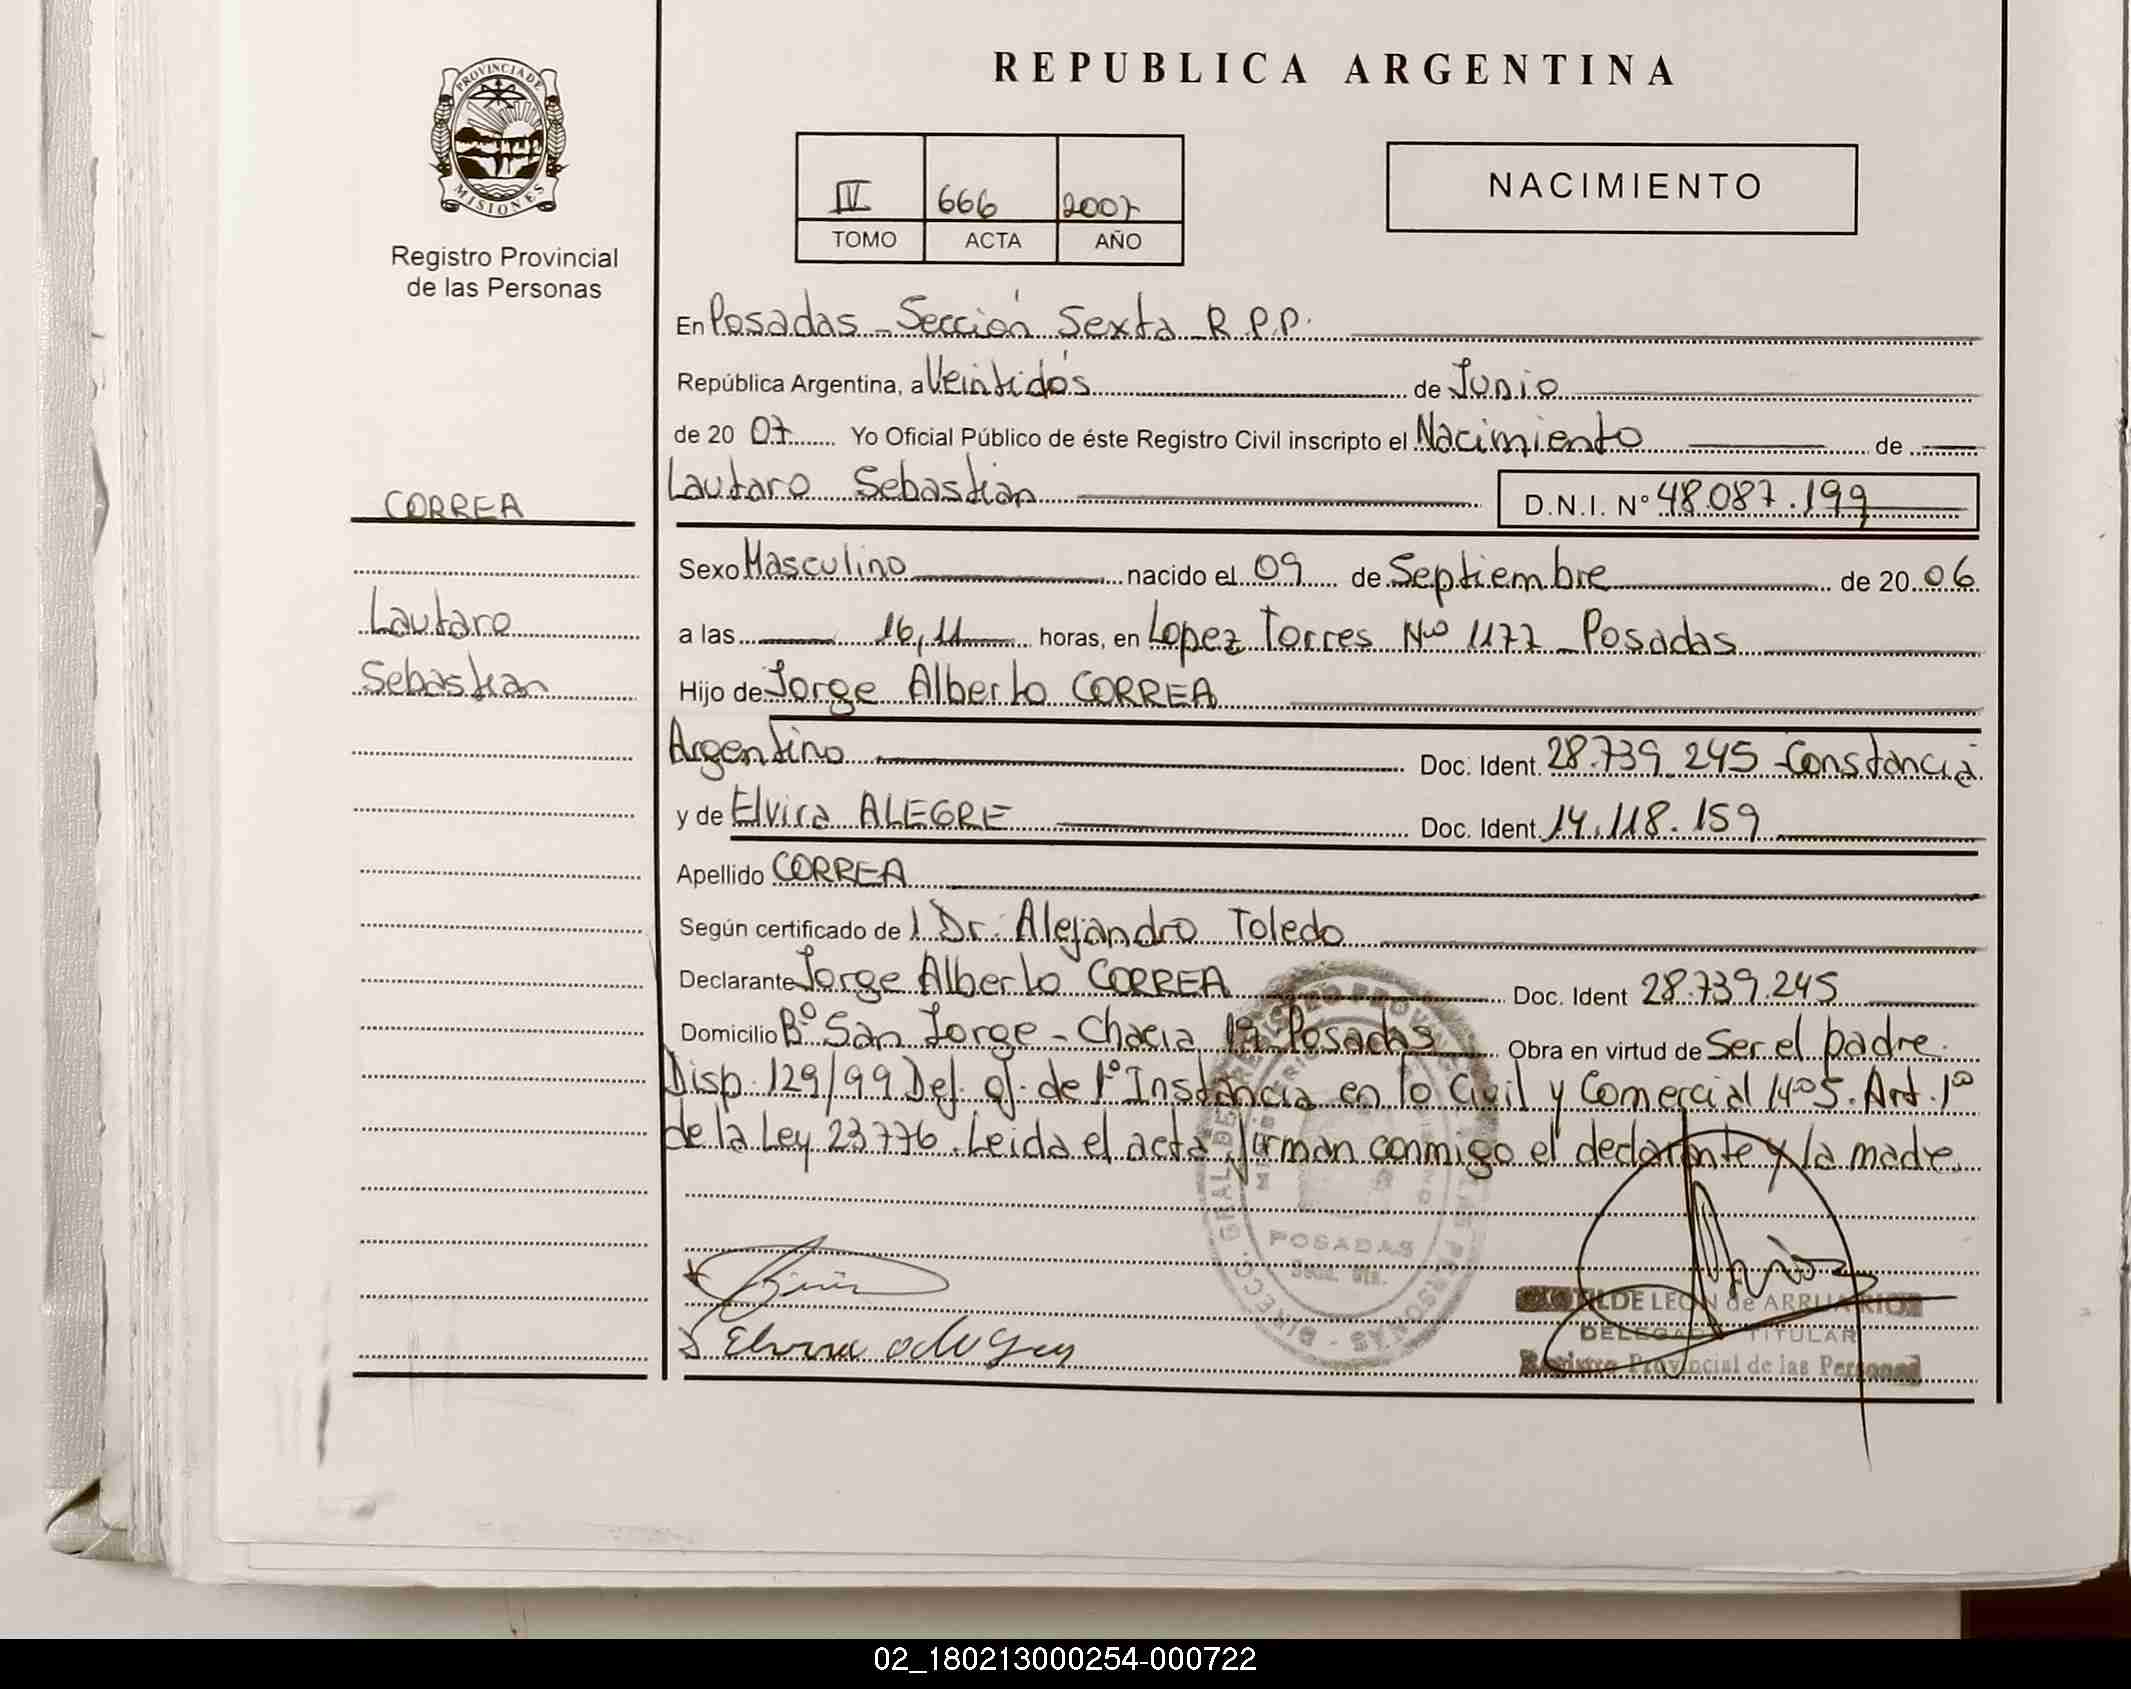 PROVINCIA DE
MISIONES
Registro Provincial
de las Personas
REPUBLICA ARGENTINA
IV 666 2007
TOMO ACTA AÑO
NACIMIENTO
En Posadas - Sección Sexta R.P.P.
República Argentina, a Veintidós de Junio
de 20 07 Yo Oficial Público de éste Registro Civil inscripto el Nacimiento de
Lautaro Sebastian D.N.I. N° 48.087.199
CORREA
Lautaro
Sebastian
Sexo Masculino nacido el 09 de Septiembre de 20 06
a las 16,11 horas, en Lopez Torres Nº 1177 - Posadas
Hijo de Jorge Alberto CORREA
Argentino Doc. Ident. 28.739.245 Constancia
y de Elvira ALEGRE Doc. Ident. 14.118.159
Apellido CORREA
Según certificado de l Dr. Alejandro Toledo
Declarante Jorge Alberto CORREA Doc. Ident 28.739.245
Domicilio Bº San Jorge - Chacra Posadas Obra en virtud de Ser el padre.
Disp. 129/99 Def. of. de 1º Instancia en lo Civil y Comercial Nº 5. Art. 1º
de la Ley 23776. Leida el acta firman conmigo el declarante y la madre.
POSADAS
LEON de ARRUA
DELEGADA TITULAR
Registro Provincial de las Personas
02_180213000254-000722